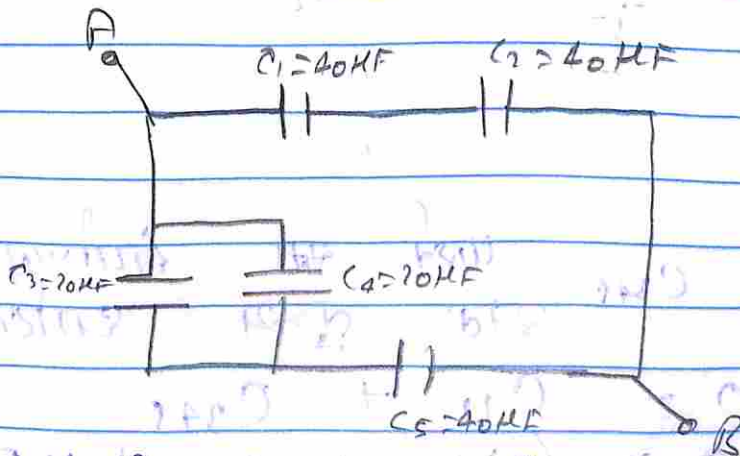 A
C1=40μF C2=40μF
C3=20μF C4=20μF
C5=40μF
B